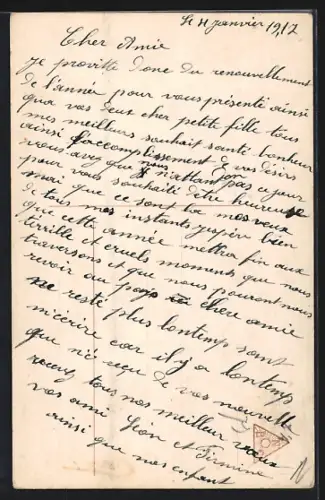 Le 4 janvier 1917
Cher Amie
je provitte donc du renouvellement
de l'année pour vous présenté ainsi
qua vos deus cher petite fille tous
mes meilleurs souhait santé bonheur
ainsi l'accomplissement de vos désirs
vous avez que nous n'attant pas ce jour
pour vous souhaiti d'être heureuse
mai que ce sont la mes veux
de tous mes instants j'espère bien
que cette année mettra fin aux
terrible et cruels moments que nous
traversons et que nous pouront nous
revoir au pays cher amie
ne resté plus lontemp sant
m'écrire car il y a lontemps
que nés reçu de vos nouvelle
recevez tous nos meilleur vœux
vos ami Léon et Firmine
ainsi que mes enfant